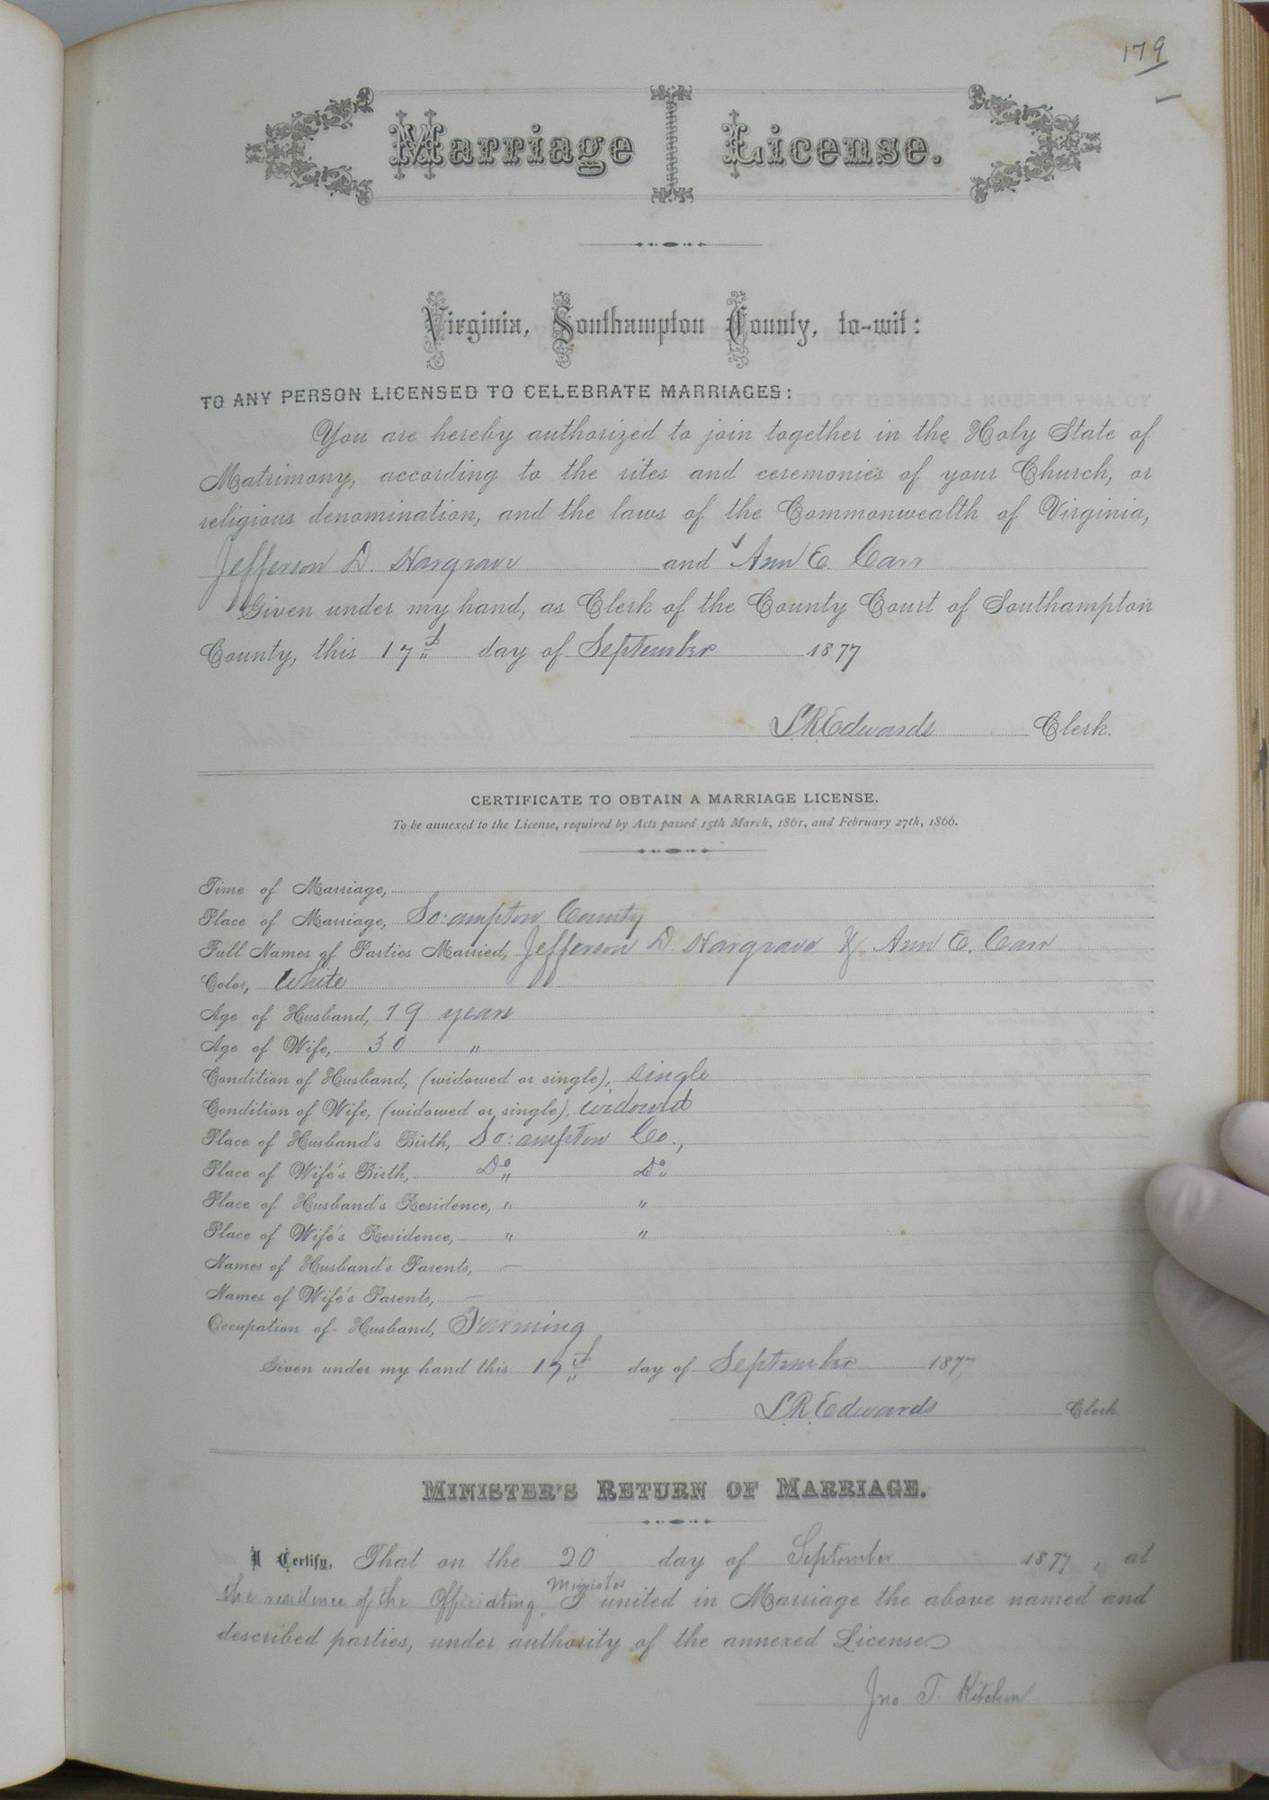 179
Marriage License.
Virginia, Southampton County, to-wit:
TO ANY PERSON LICENSED TO CELEBRATE MARRIAGES:
You are hereby authorized to join together in the Holy State of
Matrimony, according to the rites and ceremonies of your Church, or
religious denomination, and the laws of the Commonwealth of Virginia,
Jefferson D. Hargrave and Ann E. Carr
Given under my hand, as Clerk of the County Court of Southampton
County, this 17th day of September 1877
L.R. Edwards Clerk.
CERTIFICATE TO OBTAIN A MARRIAGE LICENSE.
To be annexed to the License, required by Acts passed 15th March, 1861, and February 27th, 1866.
Time of Marriage,
Place of Marriage, So:ampton County
Full Names of Parties Married, Jefferson D. Hargrave & Ann E. Carr
Color, White
Age of Husband, 19 years
Age of Wife, 30 "
Condition of Husband, (widowed or single), single
Condition of Wife, (widowed or single), widowed
Place of Husband's Birth, So:ampton Co.,
Place of Wife's Birth, Do Do
Place of Husband's Residence, " "
Place of Wife's Residence, " "
Names of Husband's Parents, —
Names of Wife's Parents, —
Occupation of Husband, Farming
Given under my hand this 17th day of September 1877
L.R. Edwards Clerk
MINISTER'S RETURN OF MARRIAGE.
I Certify, That on the 20 day of September 1877, at
the residence of the Officiating Minister I united in Marriage the above named and
described parties, under authority of the annexed License
Jno T. Kitchen